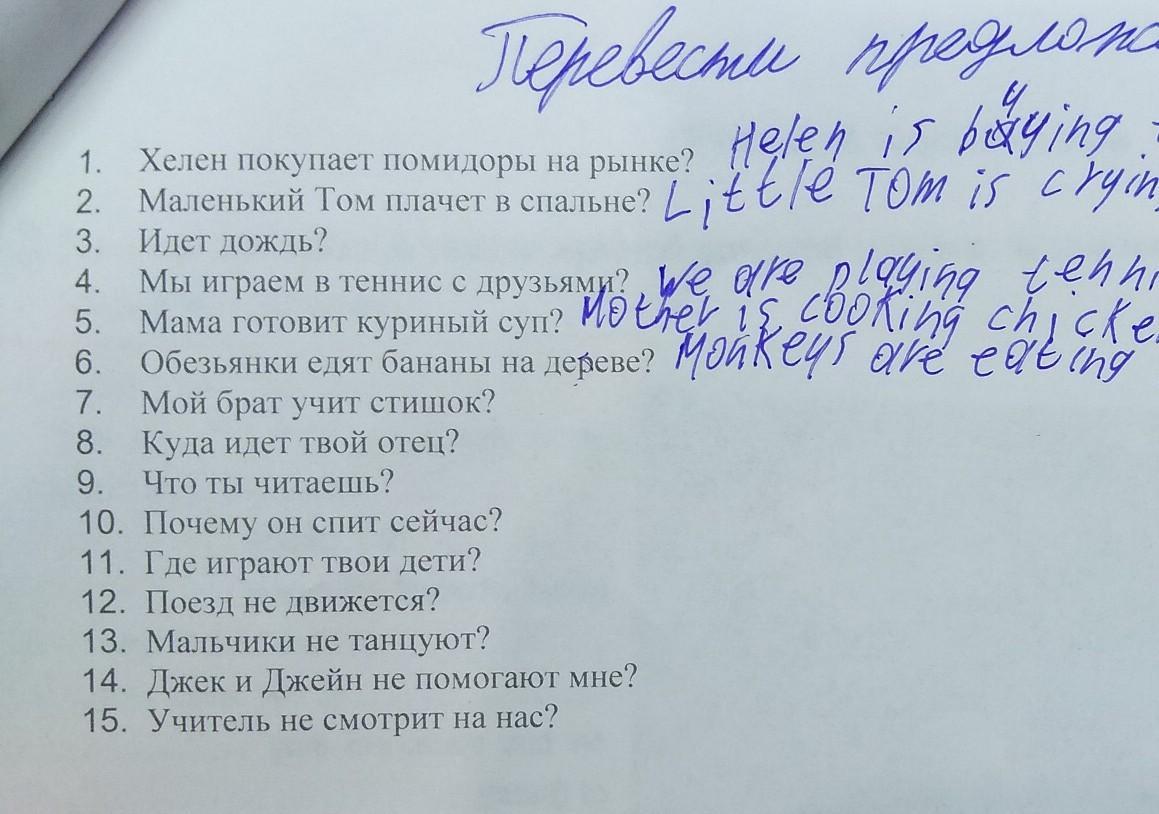 Перевести предлож
1. Хелен покупает помидоры на рынке? Helen is buying
2. Маленький Том плачет в спальне? Little Tom is cryin
3. Идет дождь?
4. Мы играем в теннис с друзьями? We are playing tenni
5. Мама готовит куриный суп? Mother is cooking chicke
6. Обезьянки едят бананы на дереве? Monkeys are eating
7. Мой брат учит стишок?
8. Куда идет твой отец?
9. Что ты читаешь?
10. Почему он спит сейчас?
11. Где играют твои дети?
12. Поезд не движется?
13. Мальчики не танцуют?
14. Джек и Джейн не помогают мне?
15. Учитель не смотрит на нас?